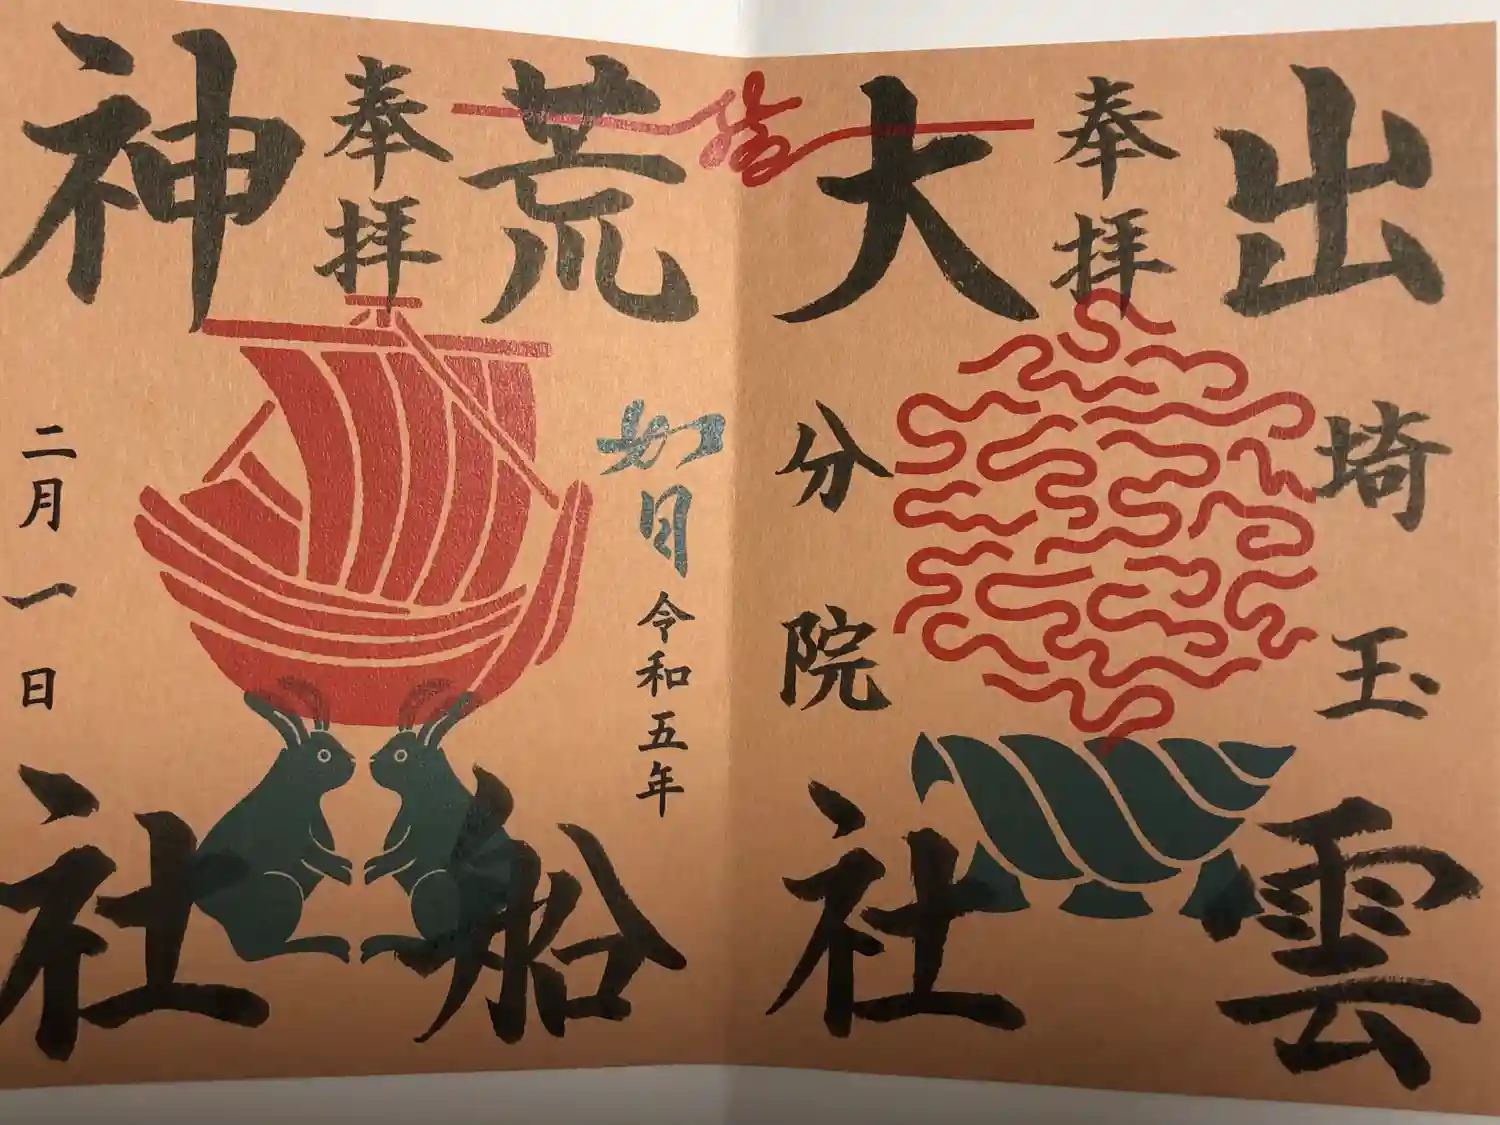 奉拝
出雲
大社
埼玉
分院
奉拝
荒船
神社
如月
令和五年
二月一日